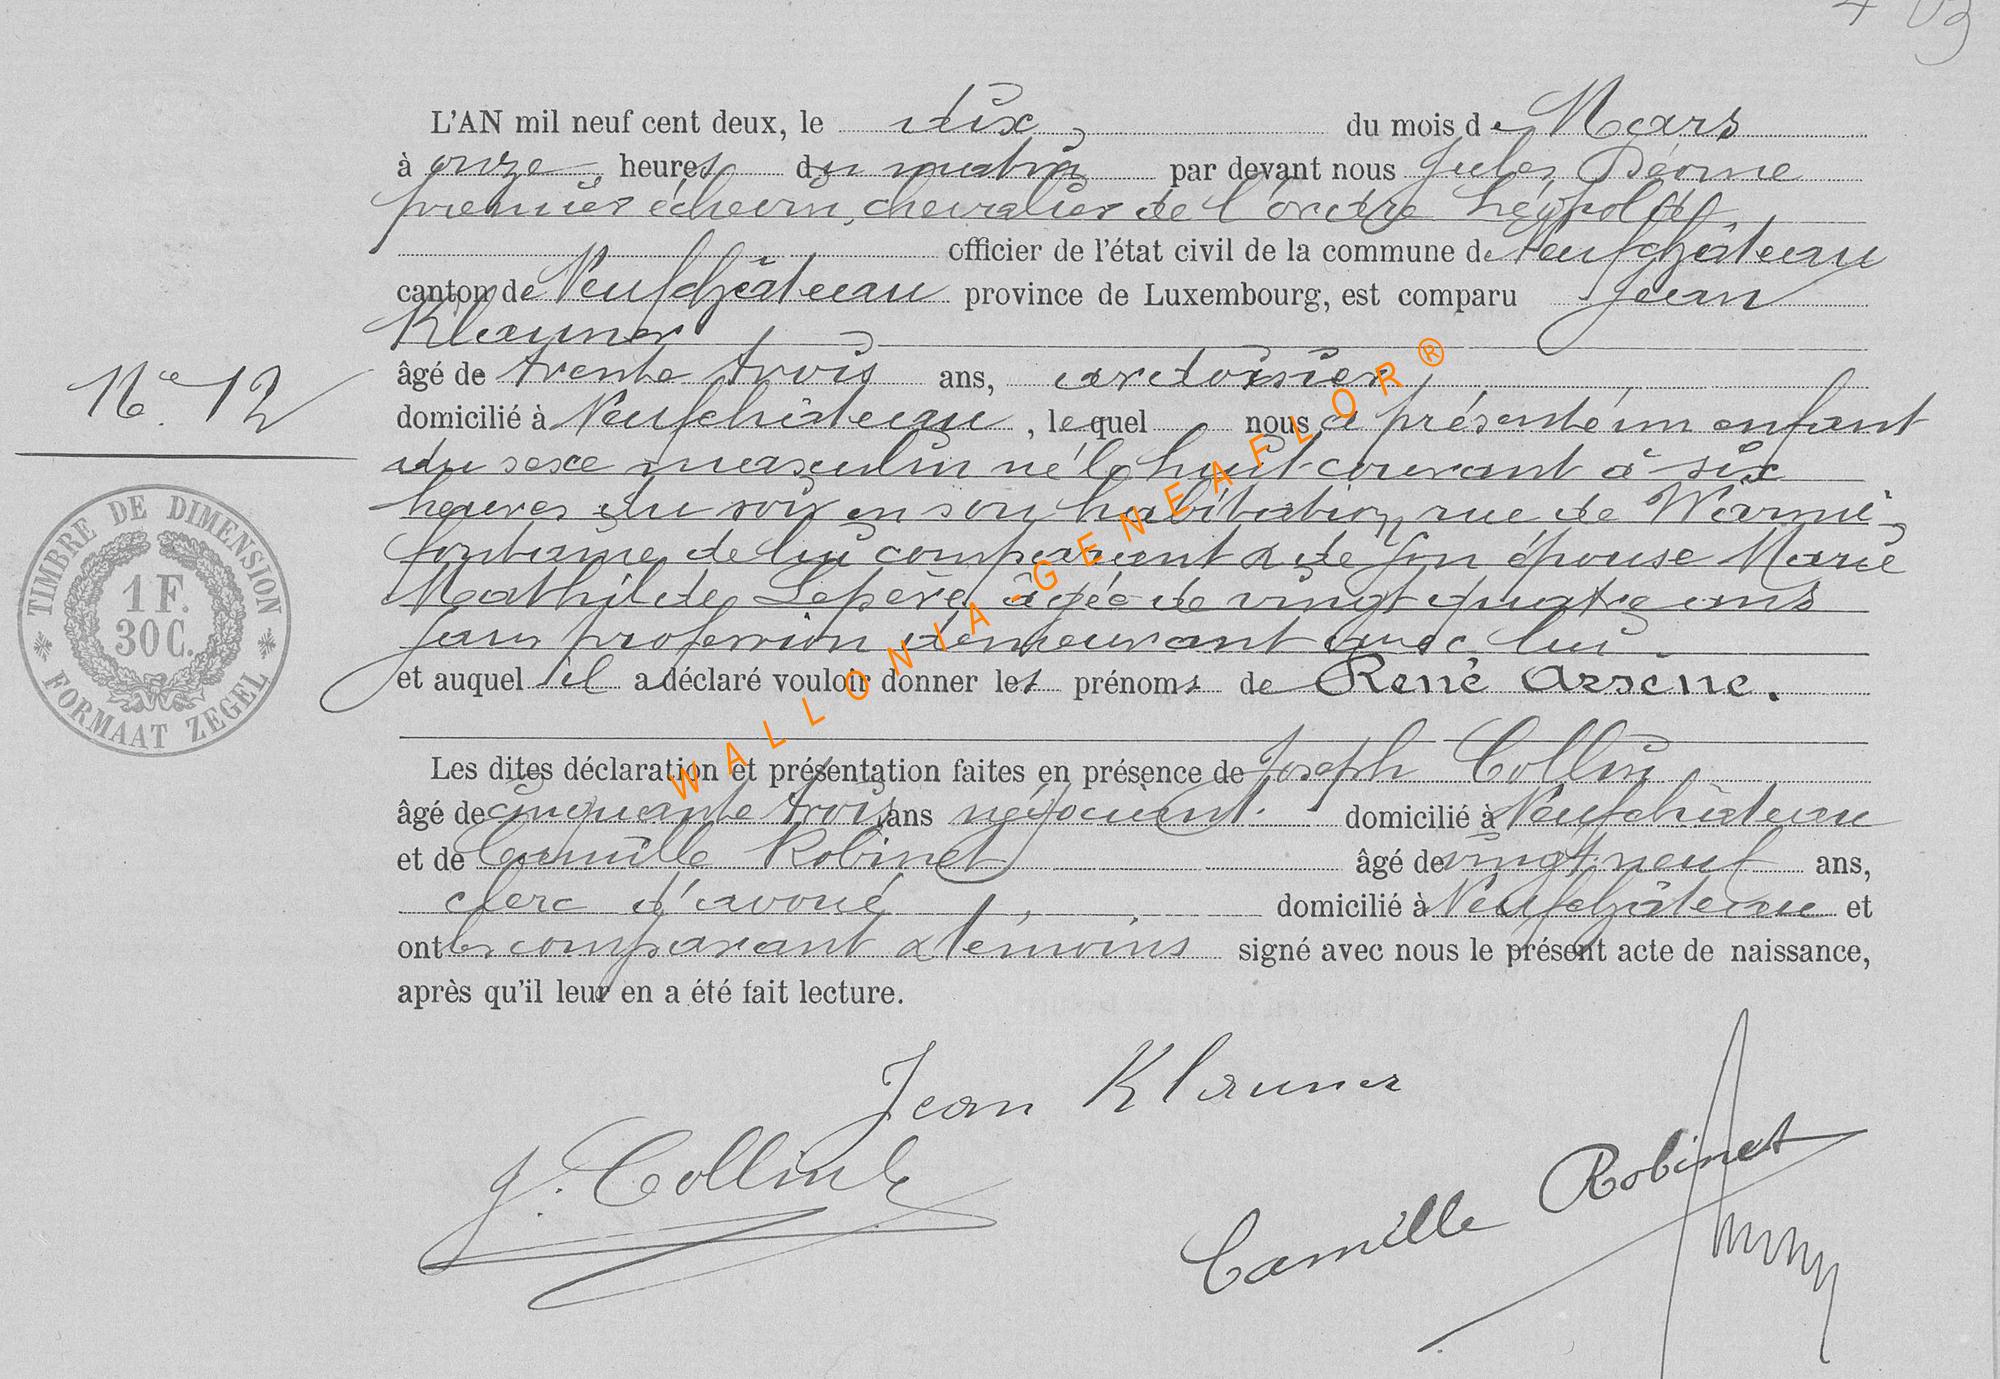 L'AN mil neuf cent deux, le dix, du mois de Mars
à onze heures du matin par devant nous Jules
premier échevin, chevalier de l'ordre Léopold,
officier de l'état civil de la commune de Neufchâteau
canton de Neufchâteau province de Luxembourg, est comparu Jean
Klauner
âgé de trente trois ans, ardoisier,
N° 12
domicilié à Neufchâteau, lequel nous a présenté un enfant
du sexe masculin né le huit courant à six
heures du soir en son habitation, rue de Warmi-
fontaine, de lui comparant & de son épouse Marie
Mathilde Lepère, âgée de vingt quatre ans
sans profession demeurant avec lui
et auquel il a déclaré vouloir donner les prénoms de René Arsène.
Les dites déclaration et présentation faites en présence de Joseph Collin,
âgé de cinquante trois ans négociant domicilié à Neufchâteau
et de Camille Robinet âgé de vingt neuf ans,
clerc d'avoué domicilié à Neufchâteau et
ont les comparant & témoins signé avec nous le présent acte de naissance,
après qu'il leur en a été fait lecture.
Jean Klauner
J. Collin
Camille Robinet
TIMBRE DE DIMENSION
1 F.
30 C.
FORMAAT ZEGEL
WALLONIA-GENEAFLOR®